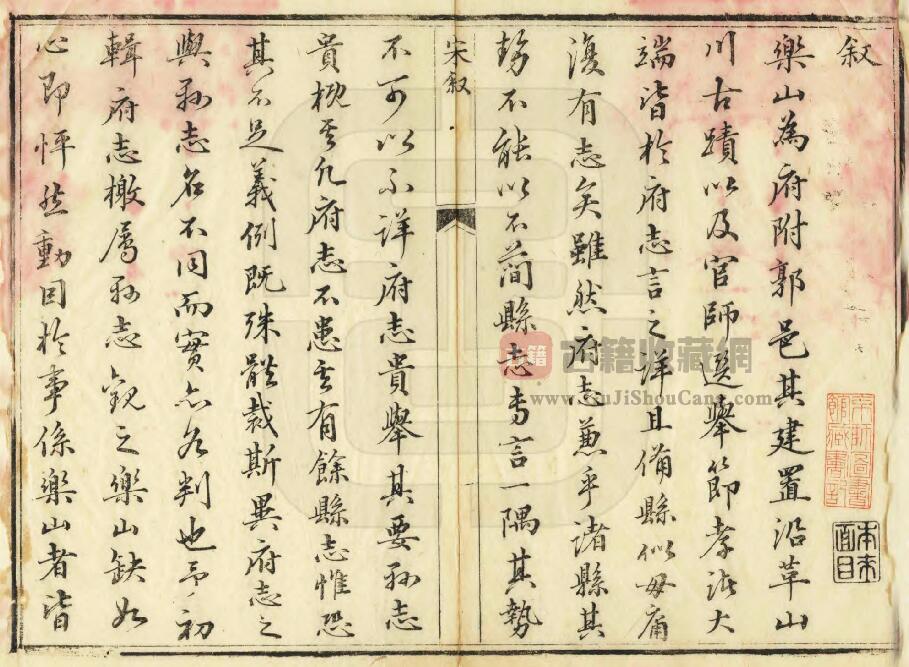 叙
樂山為府附郭邑其建置沿革山
川古蹟以及官師選舉節孝諸大
端皆於府志言之詳且備縣似毋庸
復有志矣雖然府志兼乎諸縣其
勢不能以不簡縣志專言一隅其勢
宋叙
不可以不詳府志貴舉其要縣志
貴其凡府志不患其有餘縣志惟恐
其不足義例既殊體裁斯異府志之
與縣志名不同而實亦各判也予初
輯府志檄屬縣志觀之樂山缺如
心即怦然動因於事係樂山者皆
京師圖書
館藏書記
本來
面目
古籍
古籍收藏網
www.GuJiShouCang.com